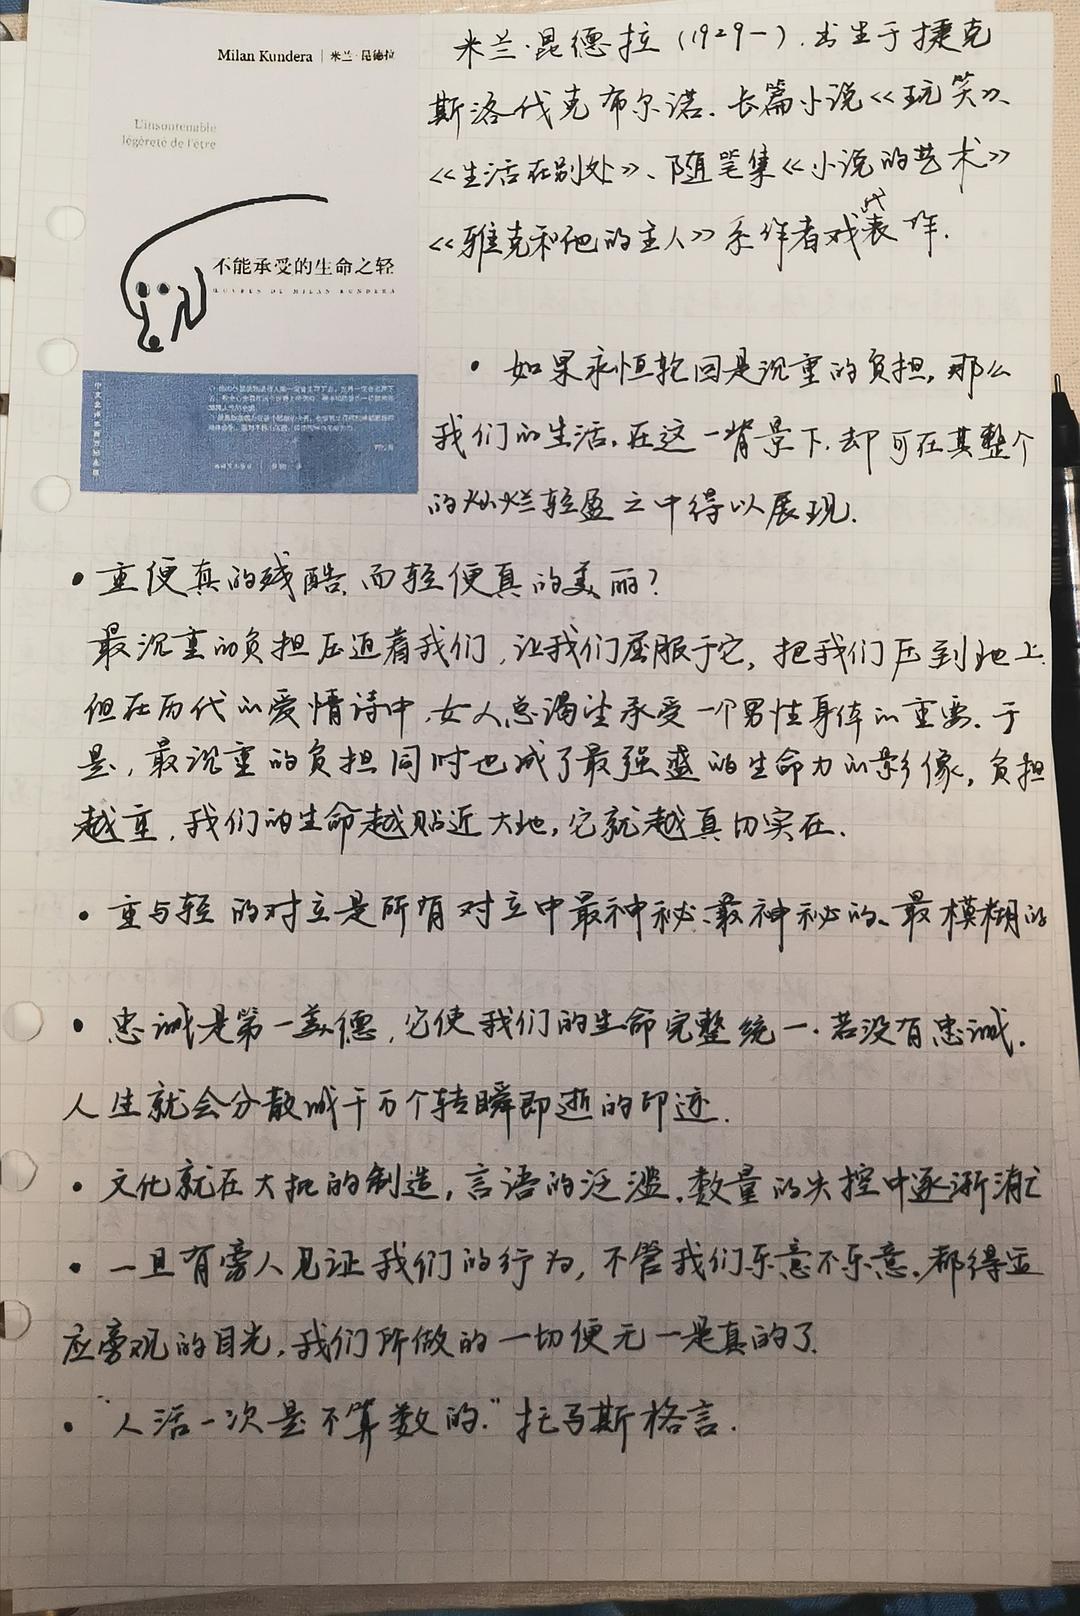 Milan Kundera | 米兰·昆德拉
L'insoutenable
légèreté de l'être
不能承受的生命之轻
ŒUVRES DE MILAN KUNDERA
米兰·昆德拉(1929-).出生于捷克
斯洛伐克布尔诺.长篇小说《玩笑》、
《生活在别处》、随笔集《小说的艺术》
《雅克和他的主人》系作者戏代表作.
• 如果永恒轮回是沉重的负担,那么
我们的生活,在这一背景下,却可在其整个
的灿烂轻盈之中得以展现.
• 重便真的残酷,而轻便真的美丽?
最沉重的负担压迫着我们,让我们屈服于它,把我们压到地上.
但在历代的爱情诗中,女人总渴望承受一个男性身体的重要.于
是,最沉重的负担同时也成了最强盛的生命力的影像,负担
越重,我们的生命越贴近大地,它就越真切实在.
• 重与轻的对立是所有对立中最神秘、最神秘的、最模糊的
• 忠诚是第一美德,它使我们的生命完整统一.若没有忠诚.
人生就会分散成千万个转瞬即逝的印迹.
• 文化就在大批的制造,言语的泛滥,数量的失控中逐渐消亡
• 一旦有旁人见证我们的行为,不管我们乐意不乐意,都得适
应旁观的目光,我们所做的一切便无一是真的了.
• "人活一次是不算数的."托马斯格言.